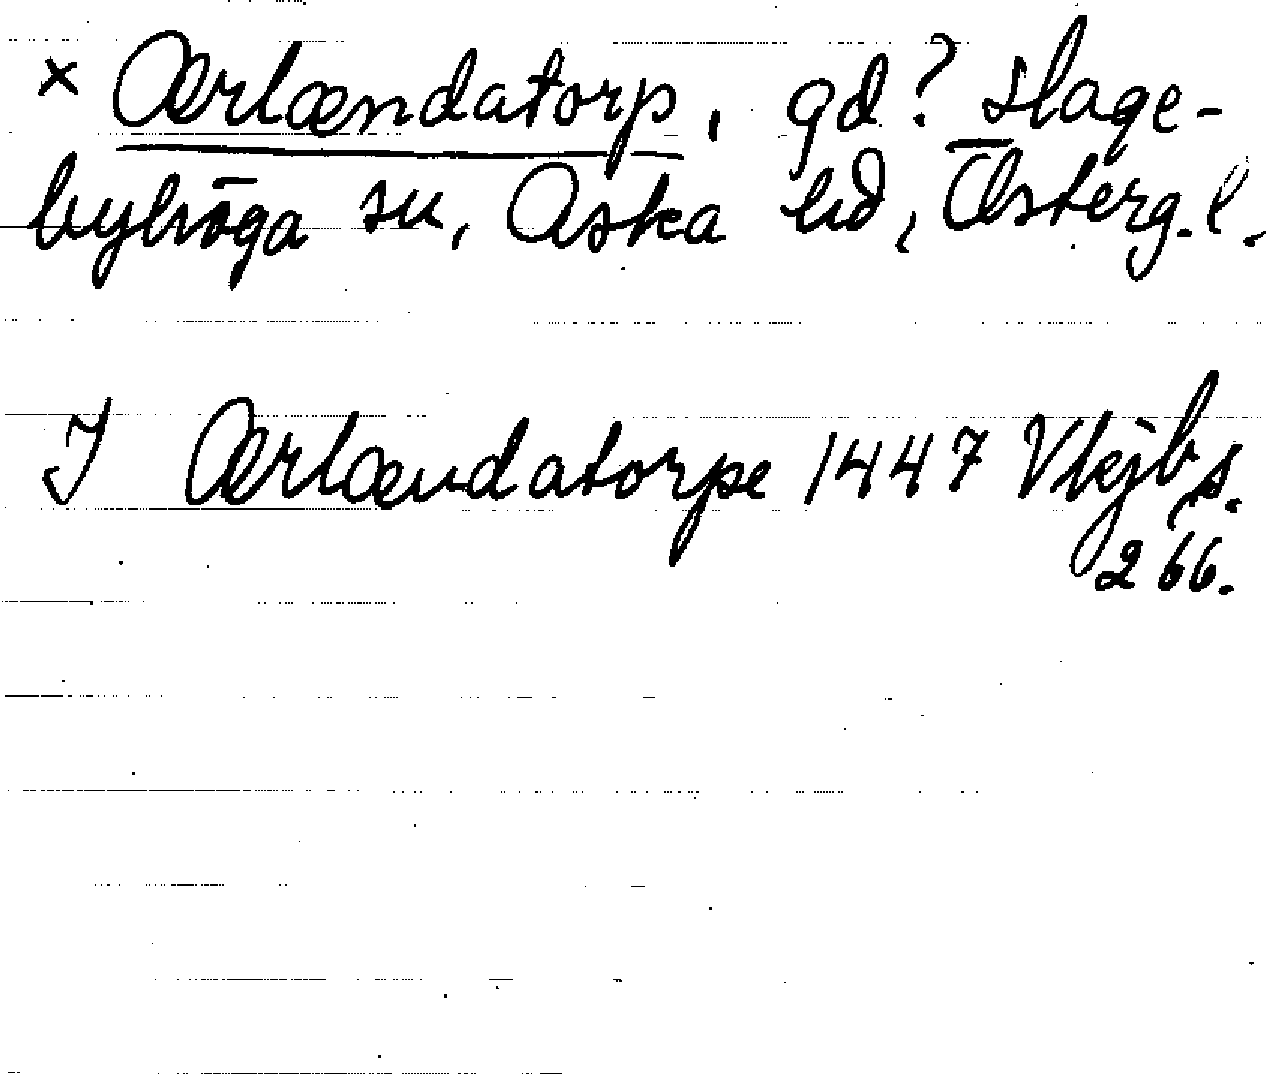 × Ærlændatorp, gd? Hage-
byhöga sn, Aska hd, Österg. l.
I Ærlændatorpe 1447 Vkjb s.
266.